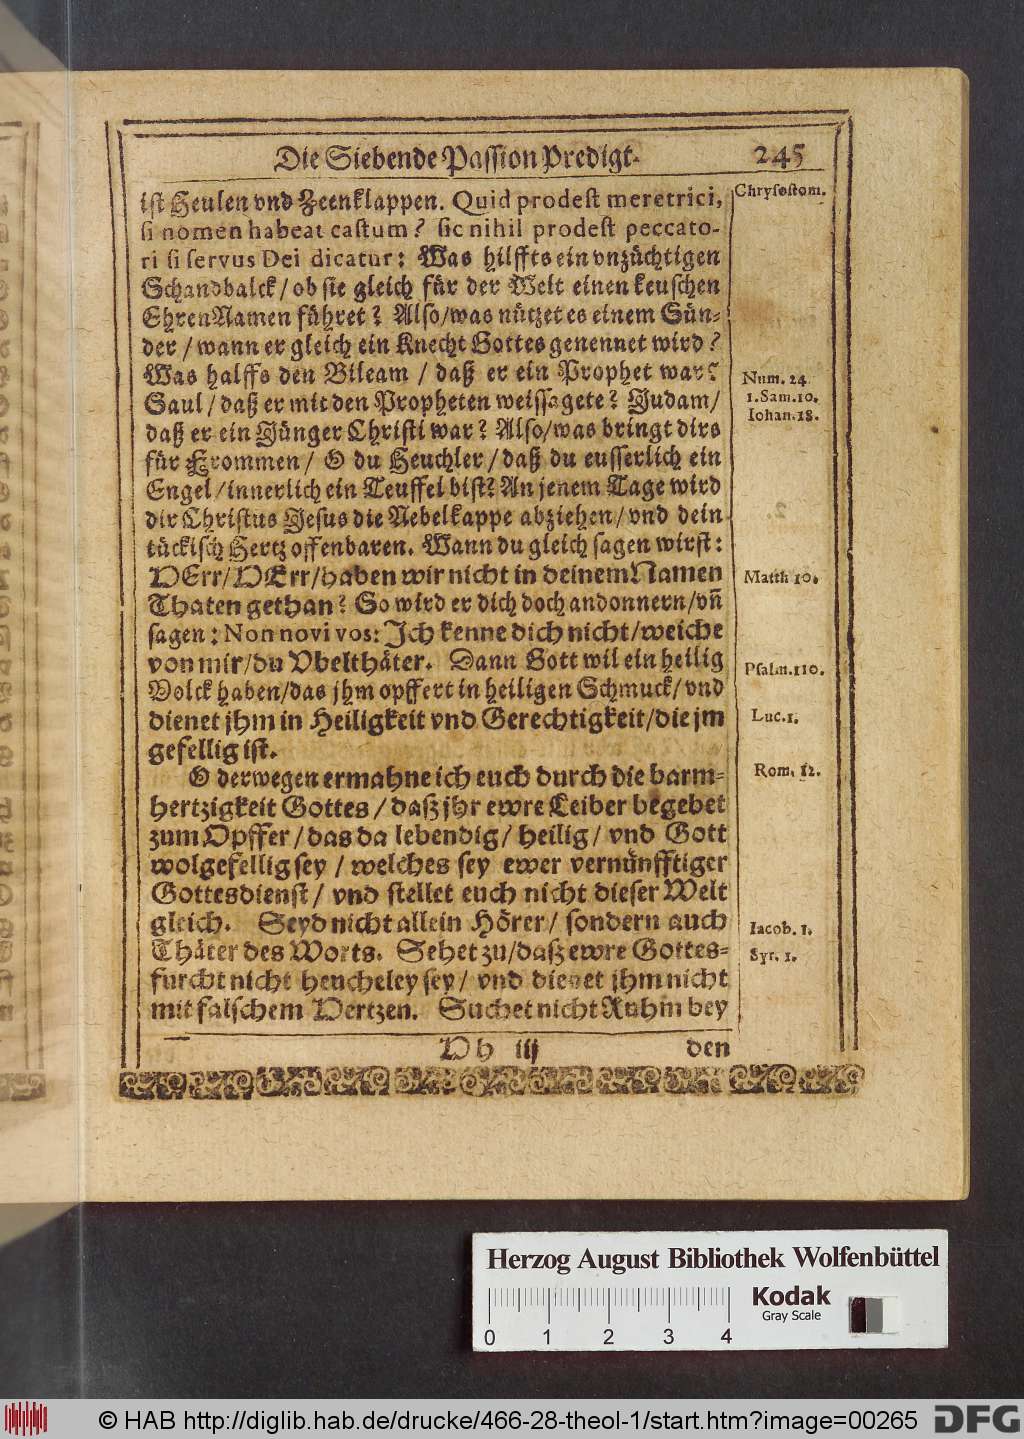 Die Siebende Passion Predigt. 245
ist Heulen vnd Zeenklappen. Quid prodest meretrici,
si nomen habeat castum? sic nihil prodest peccato-
ri si servus Dei dicatur: Was hilffts ein vnzüchtigen
Schandbalck/ ob sie gleich für der Welt einen keuschen
EhrenNamen führet? Also/ was nützet es einem Sün-
der/ wann er gleich ein Knecht Gottes genennet wird?
Was halffs den Bileam/ daß er ein Prophet war?
Saul/ daß er mit den Propheten weissagete? Judam/
daß er ein Jünger Christi war? Also/ was bringt dirs
für Frommen/ O du Heuchler/ daß du eusserlich ein
Engel/ innerlich ein Teuffel bist? An jenem Tage wird
dir Christus Jesus die Nebelkappe abziehen/ vnd dein
tückisch Hertz offenbaren. Wann du gleich sagen wirst:
HErr/ HErr/ haben wir nicht in deinem Namen
Thaten gethan? So wird er dich doch andonnern/ vñ
sagen: Non novi vos: Ich kenne dich nicht/ weiche
von mir/ du Vbelthäter. Dann Gott wil ein heilig
Volck haben/ das jhm opffert in heiligen Schmuck/ vnd
dienet jhm in Heiligkeit vnd Gerechtigkeit/ die jm
gefellig ist.
O derwegen ermahne ich euch durch die barm-
hertzigkeit Gottes/ daß jhr ewre Leiber begebet
zum Opffer/ das da lebendig/ heilig/ vnd Gott
wolgefellig sey/ welches sey ewer vernünfftiger
Gottesdienst/ vnd stellet euch nicht dieser Welt
gleich. Seyd nicht allein Hörer/ sondern auch
Thäter des Worts. Sehet zu/ daß ewre Gottes-
furcht nicht heucheley sey/ vnd dienet jhm nicht
mit falschem Hertzen. Suchet nicht Ruhm bey
Hh iij den
Chrysostom.
Num. 24.
1. Sam. 10.
Iohan. 18.
Matth 10.
Psalm. 110.
Luc. 1.
Rom. 12.
Iacob. 1.
Syr. 1.
Herzog August Bibliothek Wolfenbüttel
0 1 2 3 4
Kodak
Gray Scale
© HAB http://diglib.hab.de/drucke/466-28-theol-1/start.htm?image=00265
DFG